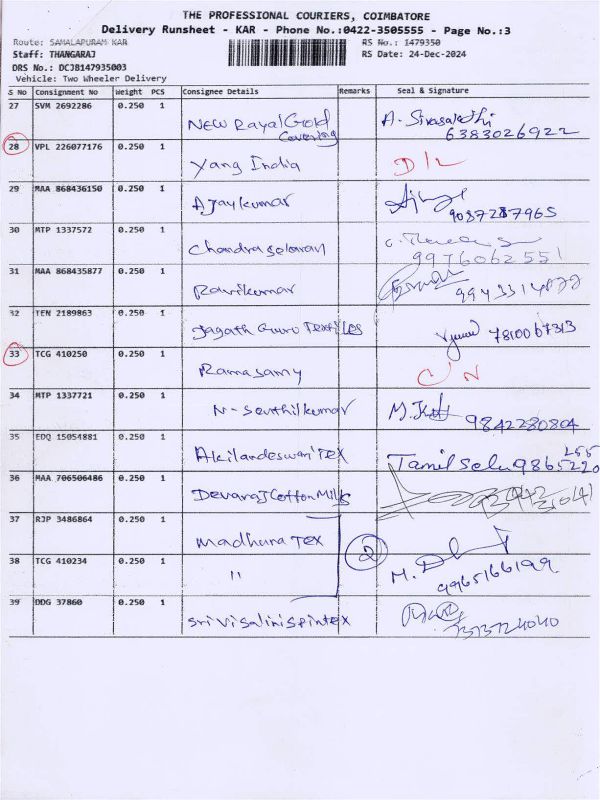 THE PROFESSIONAL COURIERS, COIMBATORE
Delivery Runsheet - KAR - Phone No.:0422-3505555 - Page No.:3
Route: SAMALAPURAM KAR RS No.: 1479350
Staff: THANGARAJ RS Date: 24-Dec-2024
DRS No.: DCJB147935003
Vehicle: Two Wheeler Delivery
S No Consignment No Weight PCS Consignee Details Remarks Seal & Signature
27 SVM 2692286 0.250 1 New Rayal Gold Covering A. Sivasakthi 6383026922
28 VPL 226077176 0.250 1 Yang India D/L
29 MAA 868436150 0.250 1 Ajaykumar 9037287965
30 MTP 1337572 0.250 1 Chandrasekaran 9976062551
31 MAA 868435877 0.250 1 Ravikumar
32 TEN 2189863 0.250 1 Jagath Guru Textiles 7810067313
33 TCG 410250 0.250 1 Ramasamy C N
34 MTP 1337721 0.250 1 N-Senthilkumar 9842280804
35 EDQ 15054881 0.250 1 Akilandeswari Tex Tamil Selu 9865220 255
36 MAA 706506486 0.250 1 Devaraj Cotton Mills
37 RJP 3486864 0.250 1 Madhuna Tex
38 TCG 410234 0.250 1 " 2 9965166199
39 DDG 37860 0.250 1 Sri Visalini Spintex